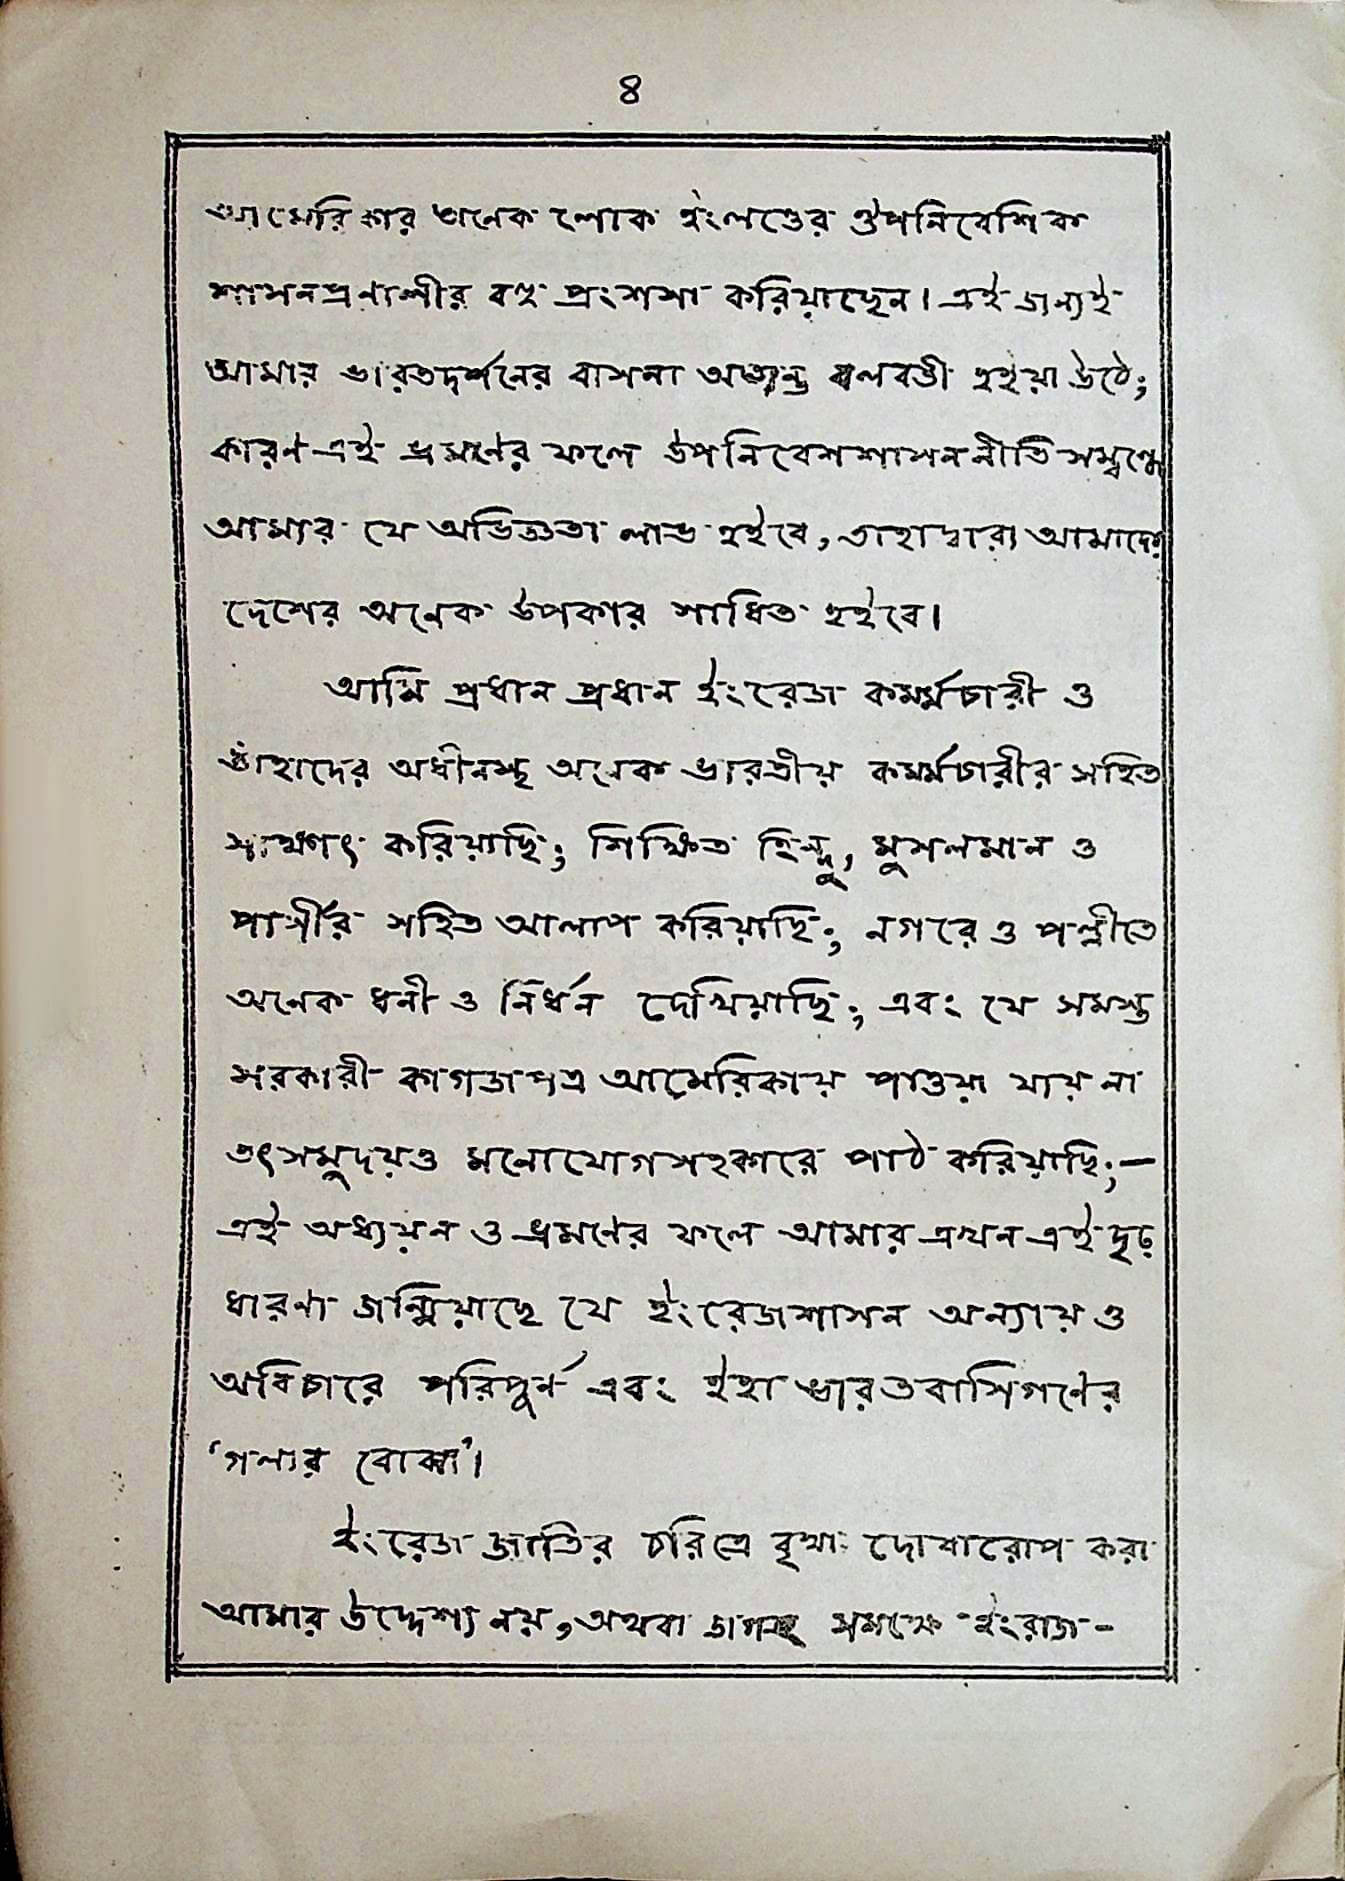 ৪
আমেরিকার অনেক লোক ইংলণ্ডের ঔপনিবেশিক
শাসনপ্রণালীর বহু প্রংশসা করিয়াছেন। এই জন্যই
আমার ভারতদর্শনের বাসনা অত্যন্ত বলবতী হইয়া উঠে;
কারণ এই ভ্রমণের ফলে উপনিবেশশাসননীতি সম্বন্ধে
আমার যে অভিজ্ঞতা লাভ হইবে, তাহাদ্বারা আমাদের
দেশের অনেক উপকার সাধিত হইবে।
আমি প্রধান প্রধান ইংরেজ কমর্ম্মচারী ও
তাঁহাদের অধীনস্থ অনেক ভারতীয় কমর্ম্মচারীর সহিত
সাক্ষাৎ করিয়াছি; শিক্ষিত হিন্দু, মুসলমান ও
পার্শীর সহিত আলাপ করিয়াছি; নগরে ও পল্লীতে
অনেক ধনী ও নির্ধন দেখিয়াছি; এবং যে সমস্ত
সরকারী কাগজপত্র আমেরিকায় পাওয়া যায় না
তৎসমুদয়ও মনোযোগসহকারে পাঠ করিয়াছি;—
এই অধ্যয়ন ও ভ্রমণের ফলে আমার এখন এই দৃঢ়
ধারণা জন্মিয়াছে যে ইংরেজশাসন অন্যায় ও
অবিচারে পরিপূর্ন এবং ইহা ভারতবাসিগণের
‘গলার বোঝা’।
ইংরেজ জাতির চরিত্রে বৃথা দোষারোপ করা
আমার উদ্দেশ্য নয়, অথবা জগৎ সমক্ষে ইংরাজ-